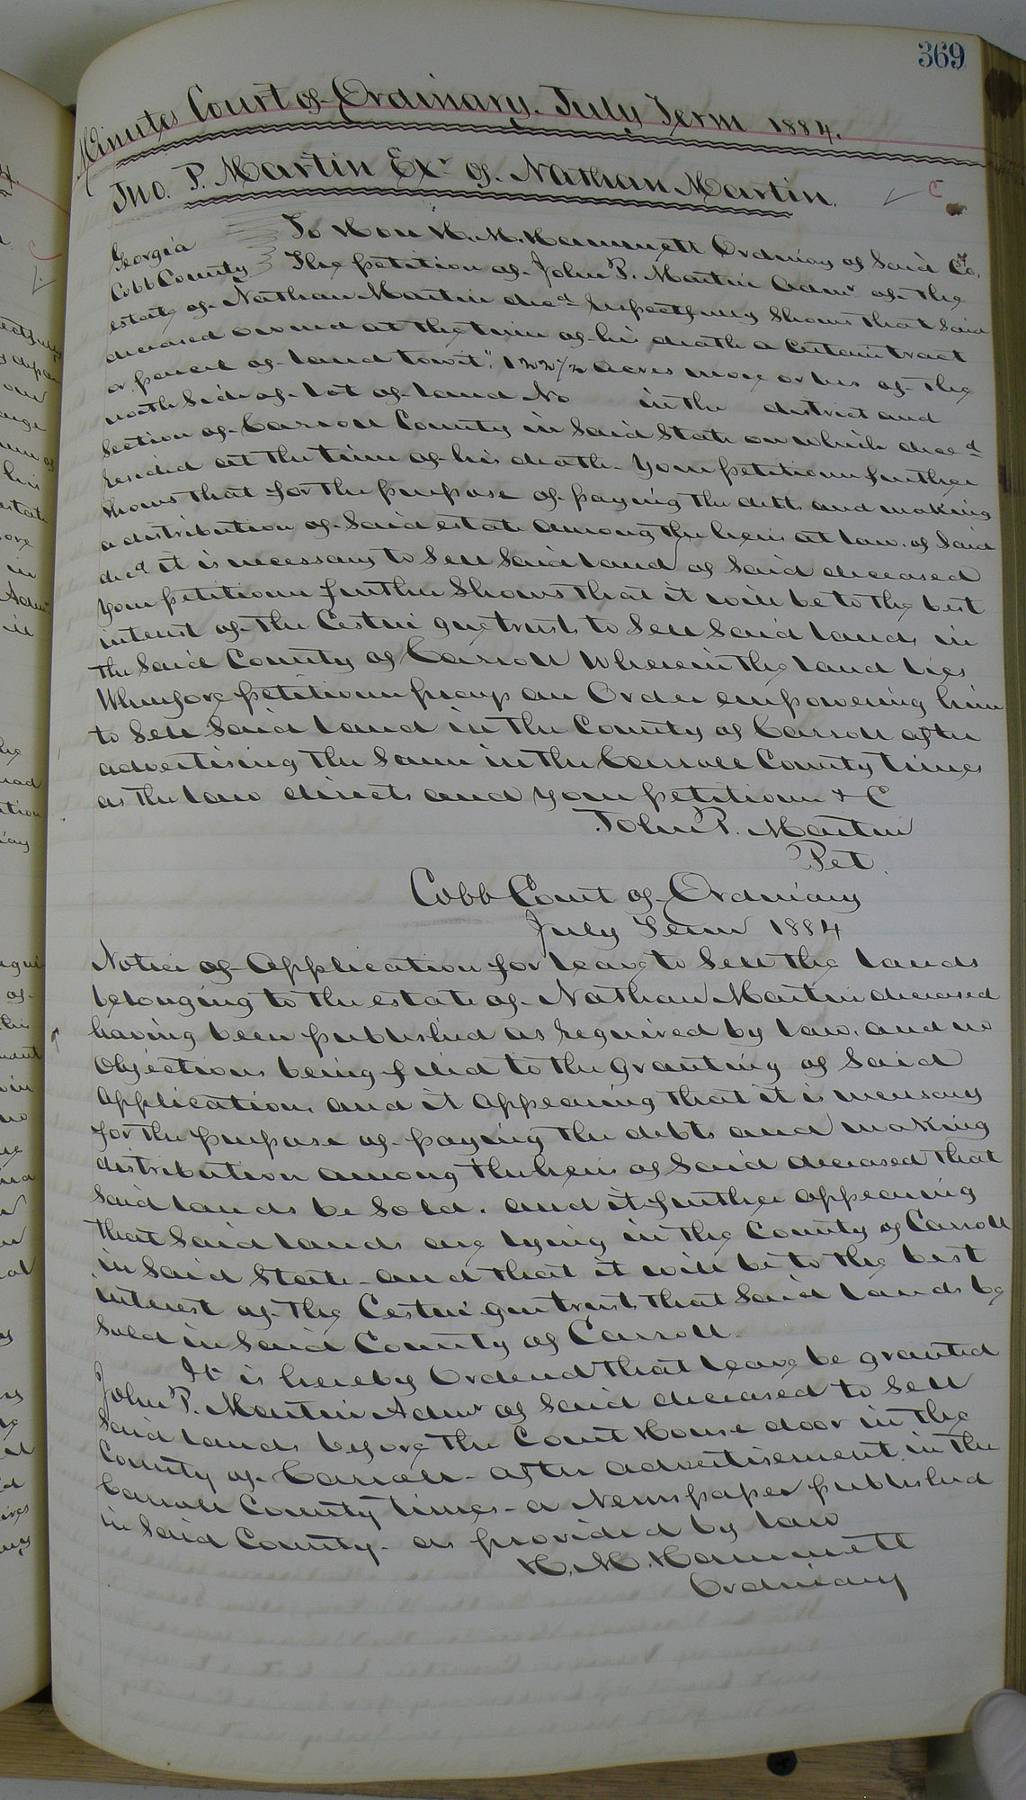 369
Minutes Court of Ordinary. July Term 1884.
Jno. P. Martin Exr of Nathan Martin.
C
Georgia
Cobb County
To Hon H. M. Hammett Ordinary of Said Co.
The petition of John P. Martin Admr of the
estate of Nathan Martin decd respectfully Shows that Said
deceased owned at the time of his death a certain tract
or parcel of land towit: 122 1/2 acres more or less of the
north Side of Lot of land No in the district and
Section of Carroll County in Said State on which decd
resided at the time of his death. Your petitioner further
Shows that for the purpose of paying the debts and making
a distribution of Said estate among the heirs at law of Said
decd it is necessary to Sell Said land of Said deceased
Your petitioner further Shows that it will be to the best
interest of the Cestui que trusts to Sell Said lands in
the Said County of Carroll wherein the land lies
Wherefore petitioner prays an Order empowering him
to Sell Said land in the County of Carroll after
advertising the Same in the Carroll County times
as the law directs and your petitioner & C
John P. Martin
Pet.
Cobb Court of Ordinary
July Term 1884
Notice of Application for leave to Sell the lands
belonging to the estate of Nathan Martin deceased
having been published as required by law. and no
Objections being filed to the granting of Said
Application, and it appearing that it is necessary
for the purpose of paying the debts and making
distribution among the heirs of Said deceased that
Said lands be Sold. and it further appearing
that Said lands are lying in the County of Carroll
in Said State and that it will be to the best
interest of the Cestui que trusts that Said lands be
Sold in Said County of Carroll.
It is hereby Ordered that leave be granted
John P. Martin Admr of Said deceased to Sell
Said lands before the Court House door in the
County of Carroll - after advertisement in the
Carroll County times - a Newspaper published
in Said County. as provided by law
H. M. Hammett
Ordinary